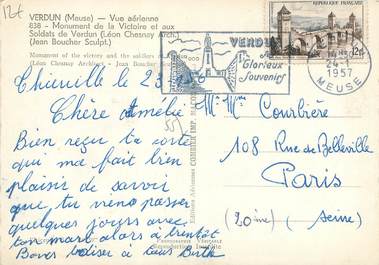 12t
VERDUN (Meuse) — Vue aérienne
838 - Monument de la Victoire et aux
Soldats de Verdun (Léon Chesnay Arch.)
(Jean Boucher Sculpt.)
Monument of the victory and the soldiers of
(Léon Chesnay Architect) - Jean Boucher
VERDUN
Ses
Glorieux
Souvenirs
REPUBLIQUE FRANÇAISE
12f
24-1
1957
MEUSE
Thierville le 23
Chère Amélie
Bien reçu ta carte
qui ma fait bien
plaisir de savoir
que tu viens passer
quelques jours avec
ton mari alors à bientôt
Bons baiser à tous
Mr Mme Courbière
108 Rue de Belleville
Paris
(20ème) (Seine)
Editions Aériennes COMBIER IMP. MACON